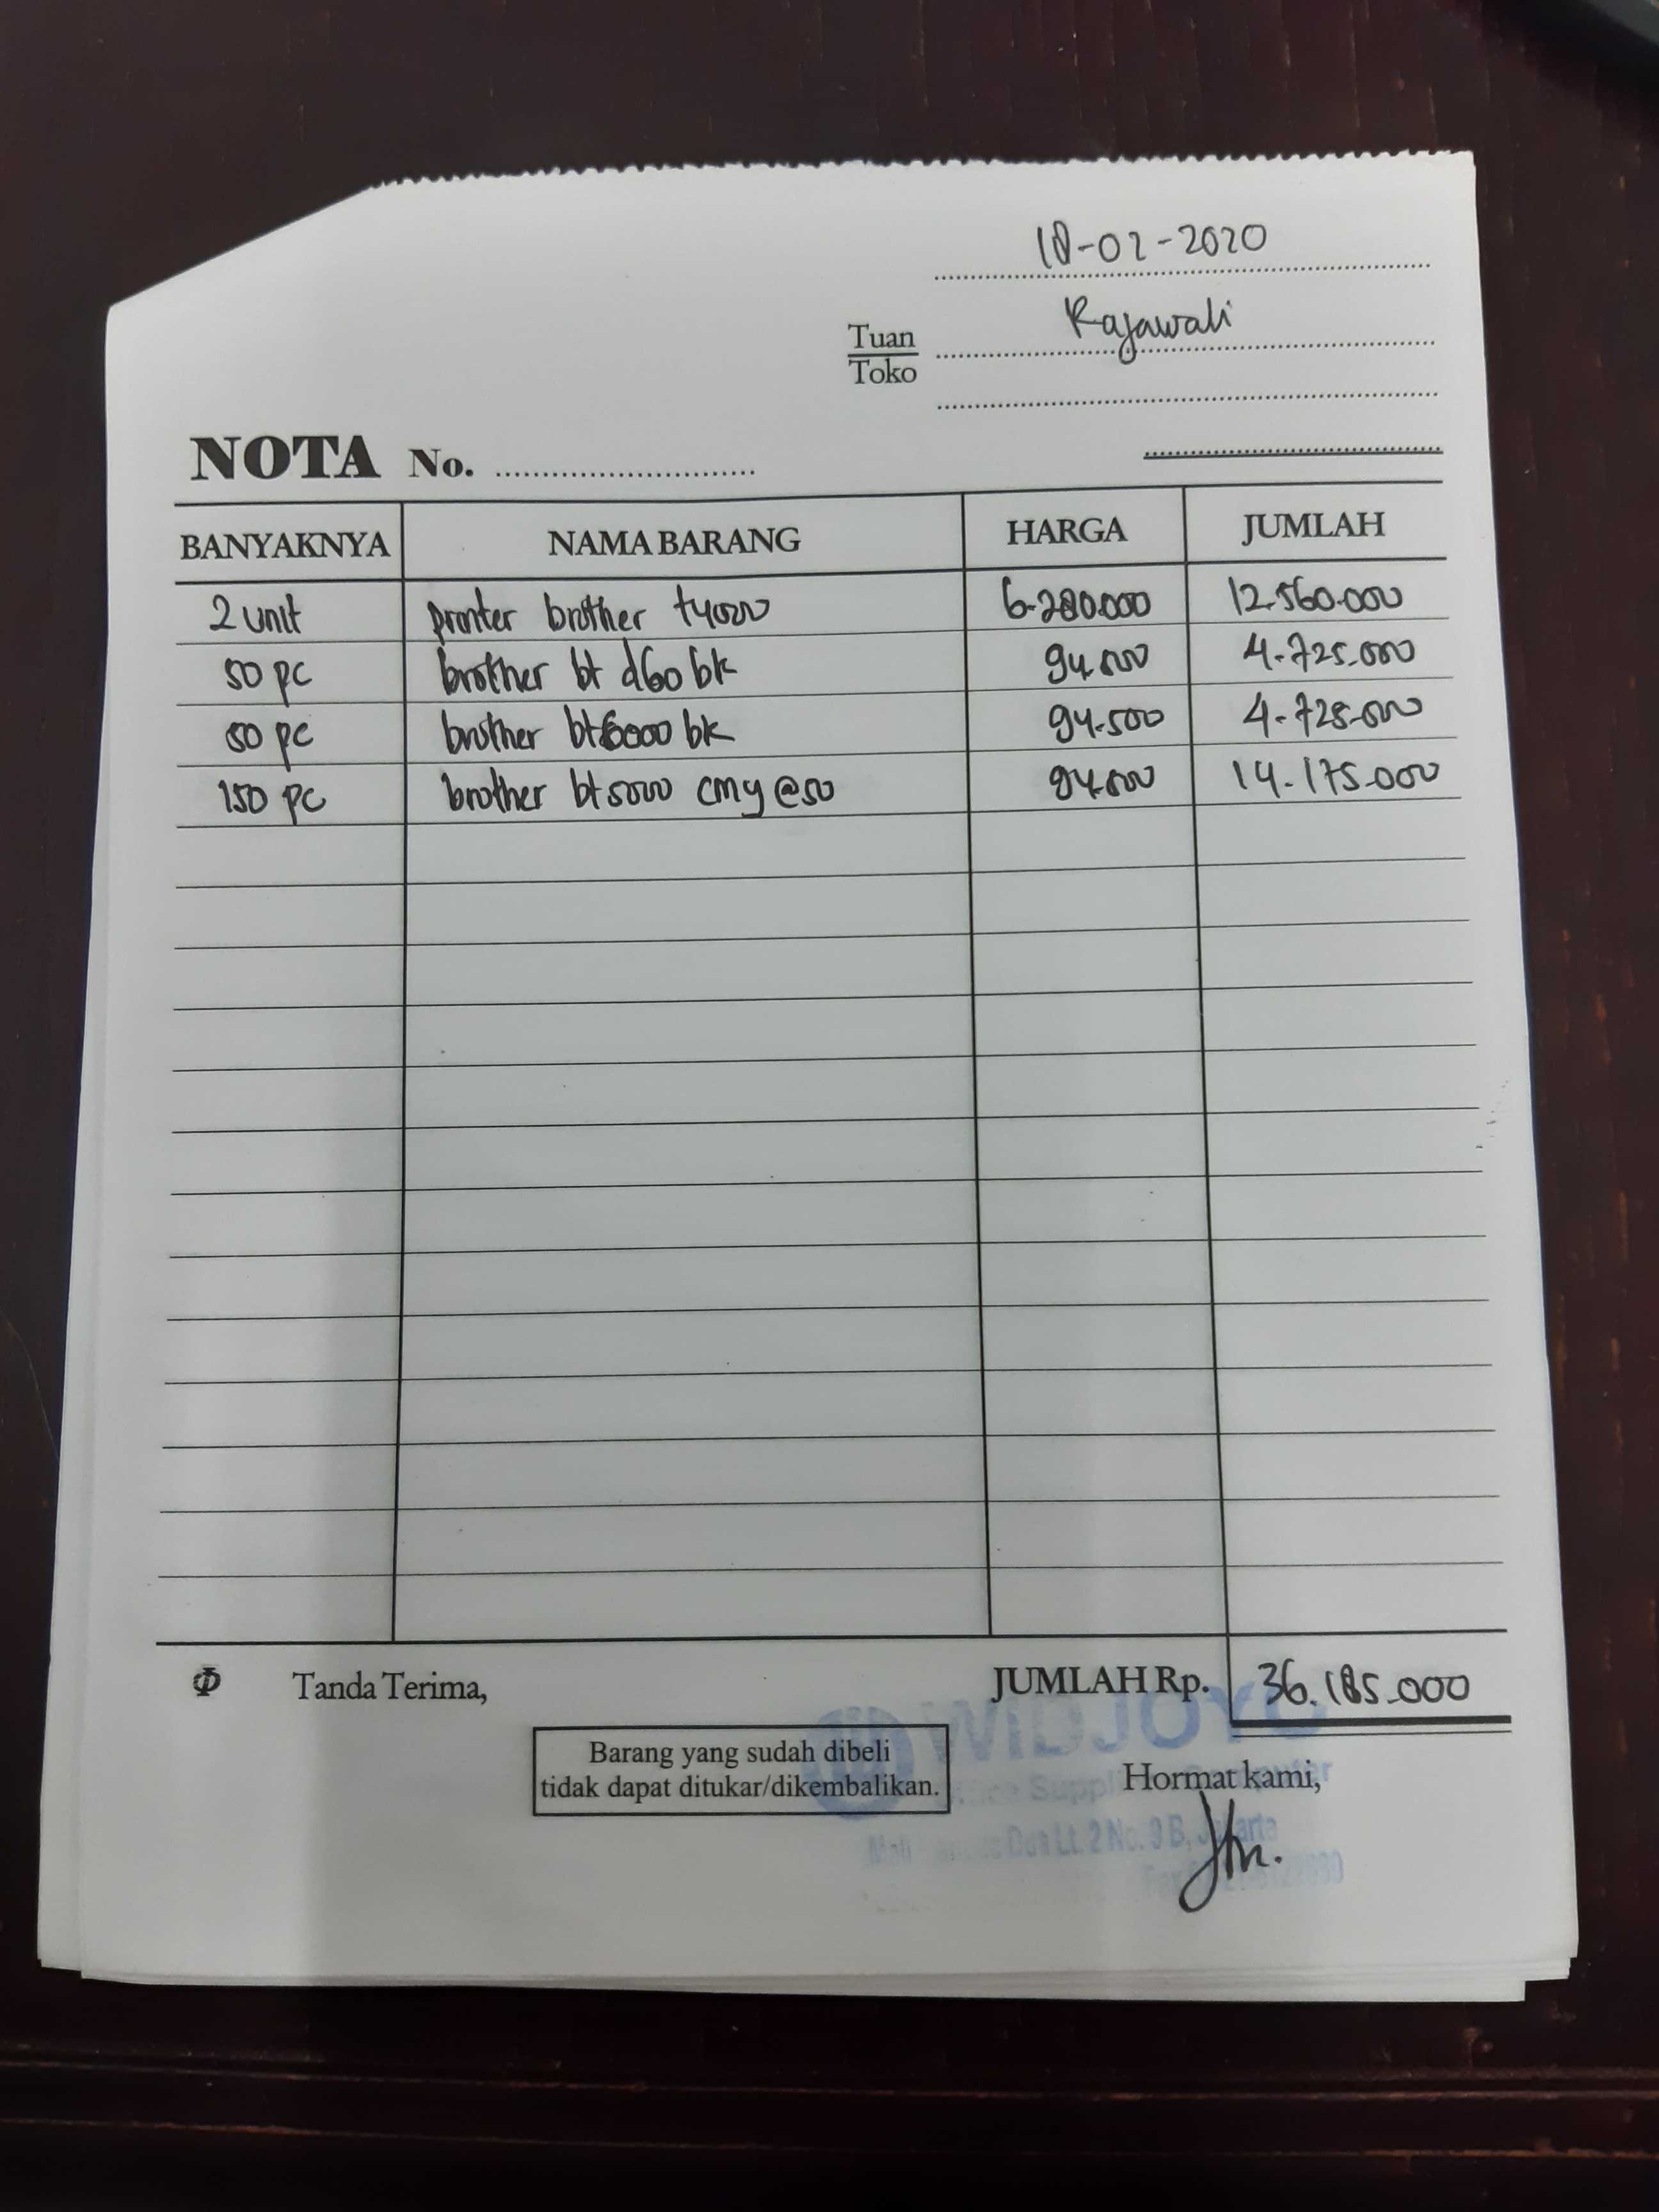 18-02-2020
Tuan Rajawali
Toko
NOTA No.
BANYAKNYA NAMA BARANG HARGA JUMLAH
2 unit printer brother t4000 6.280.000 12.560.000
50 pc brother bt d60 bk 94.500 4.725.000
50 pc brother bt6000 bk 94.500 4.725.000
150 pc brother bt5000 cmy @50 94.500 14.175.000
Φ Tanda Terima, JUMLAH Rp. 36.185.000
WIDJOYO
Barang yang sudah dibeli
tidak dapat ditukar/dikembalikan.
Hormat kami,
Office Supplies Computer
Dua Lt. 2 No. 9 B, Jakarta